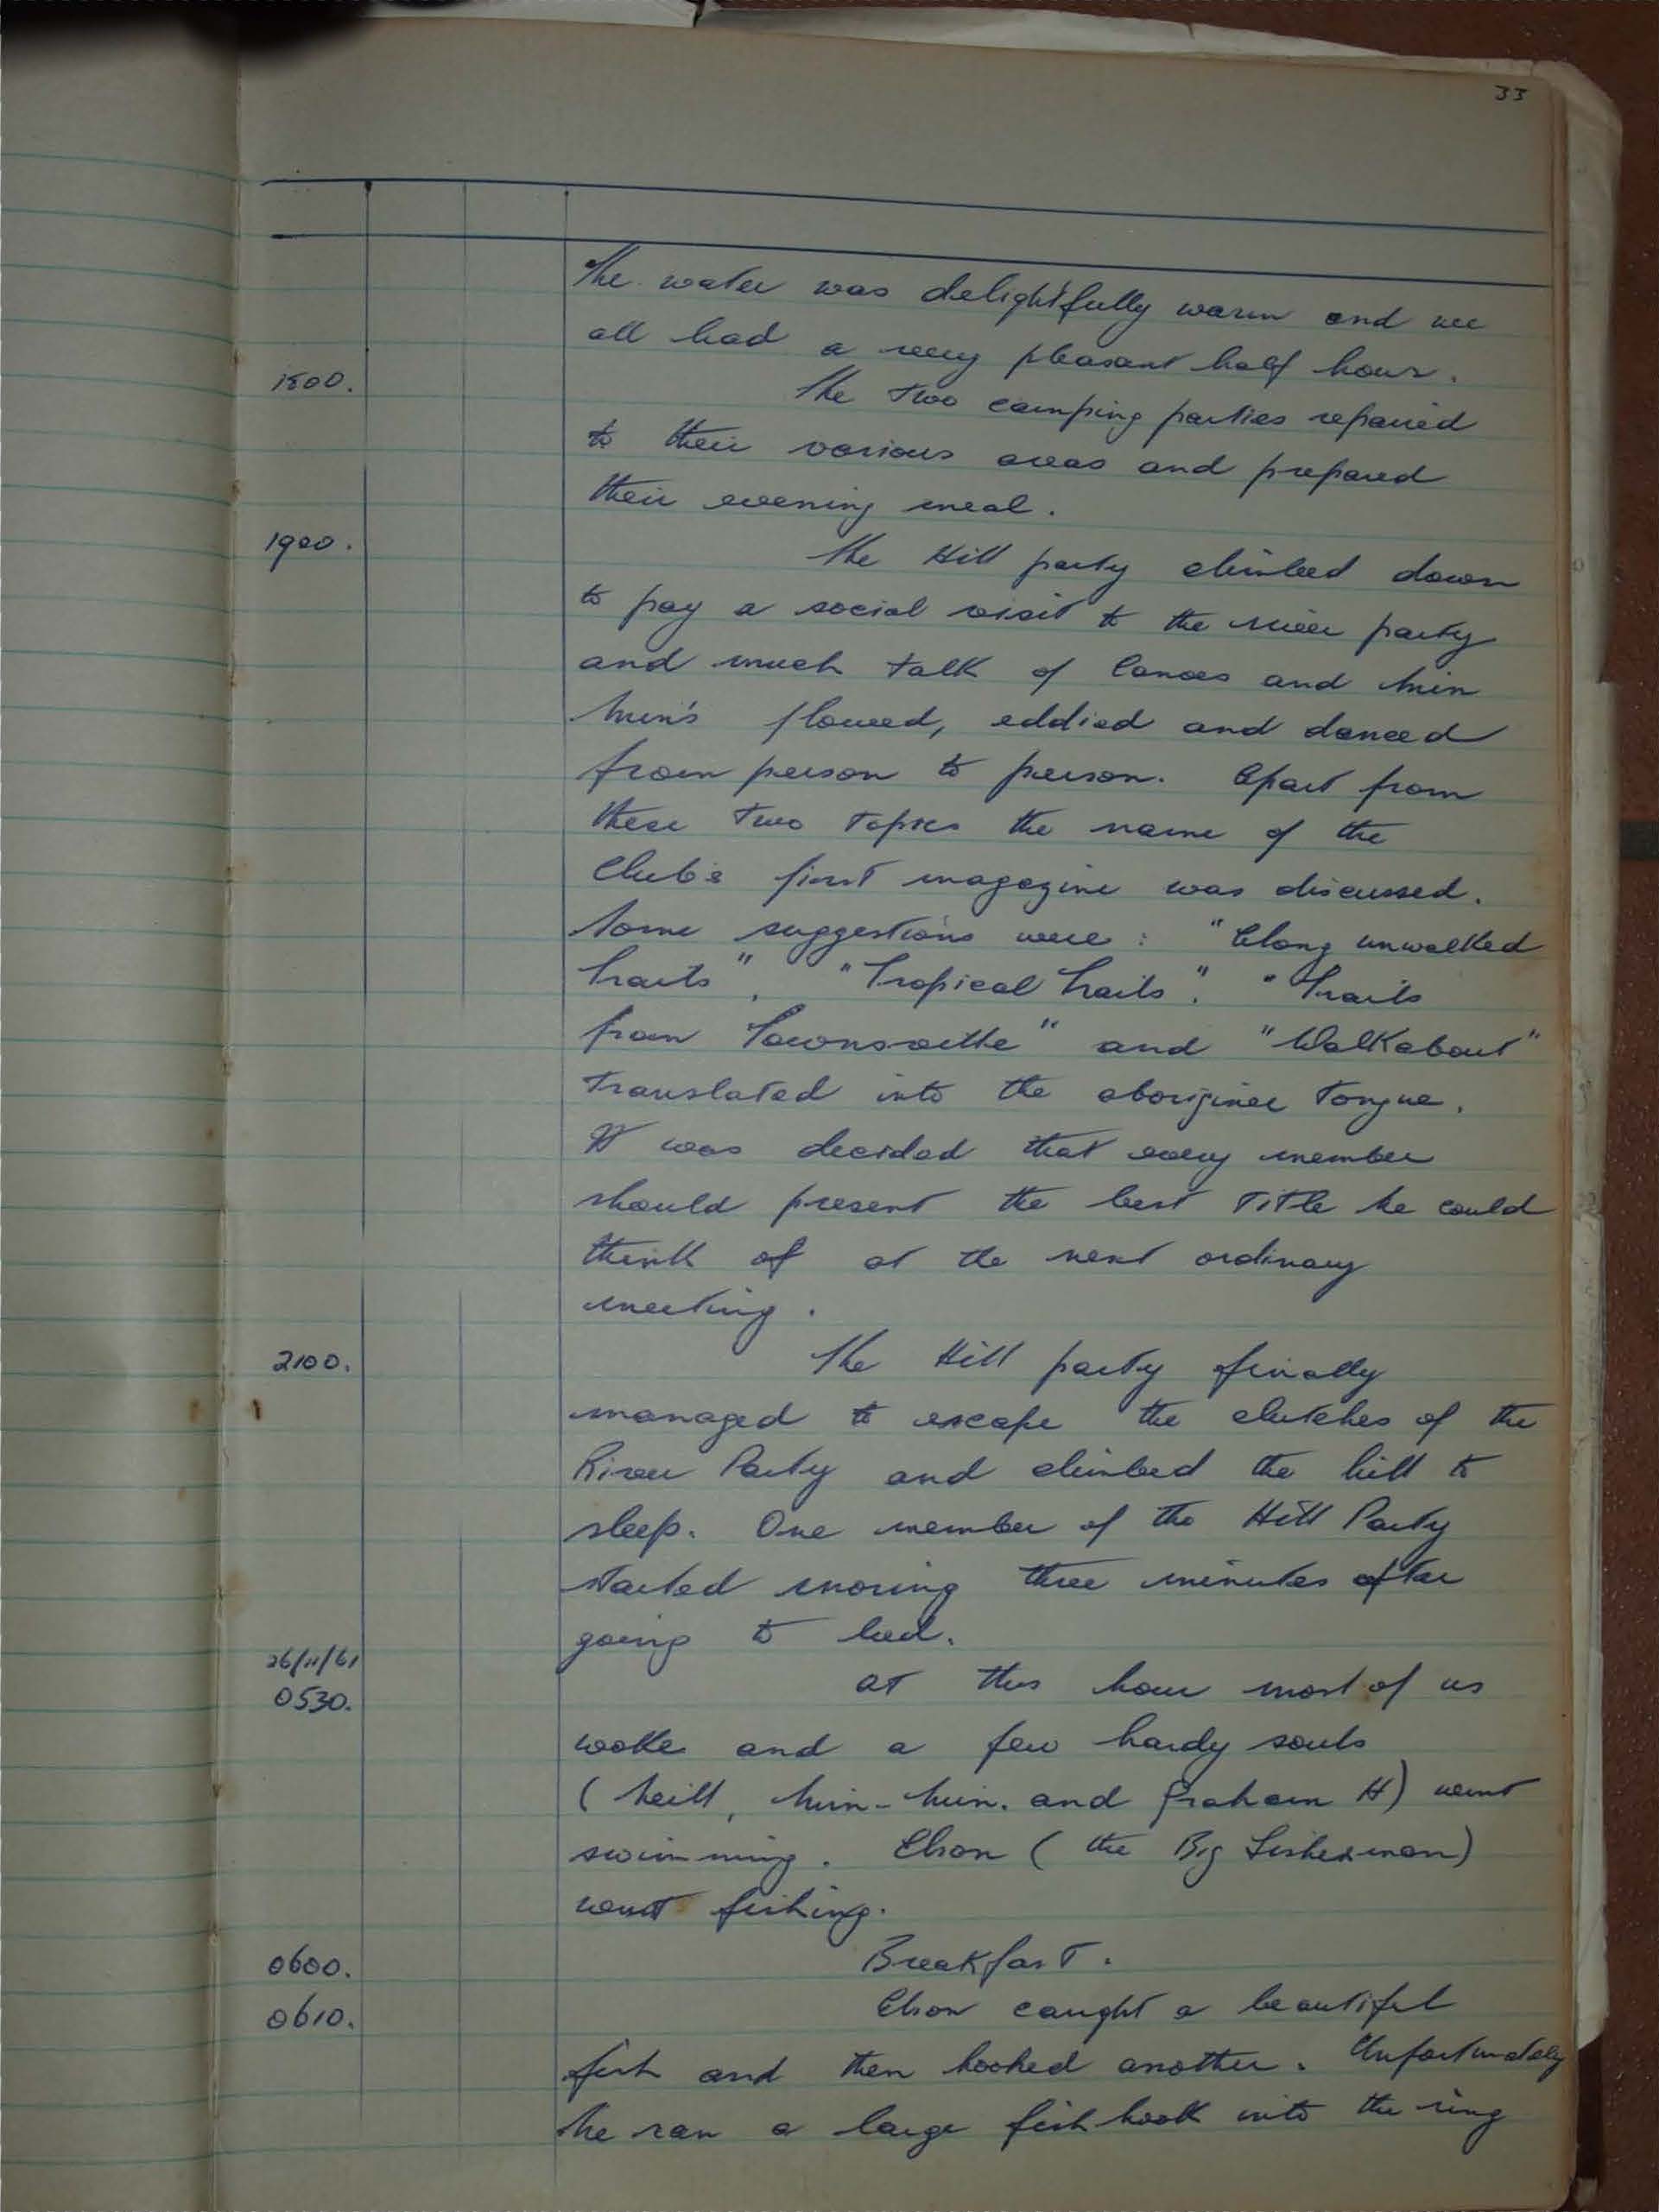 33
The water was delightfully warm and we
all had a very pleasant half hour.
1800. The two camping parties repaired
to their various areas and prepared
their evening meal.
1900. The Hill party climbed down
to pay a social visit to the river party
and much talk of Canoes and Min
Min's flowed, eddied and danced
from person to person. Apart from
these two topics the name of the
Club's first magazine was discussed.
Some suggestions were: "Along unwalked
Trails", "Tropical Trails". "Trails
from Townsville" and "Walkabout"
translated into the aboriginee tongue.
It was decided that every member
should present the best title he could
think of at the next ordinary
meeting.
2100. The Hill party finally
managed to escape the clutches of the
River Party and climbed the hill to
sleep. One member of the Hill Party
started snoring three minutes after
going to bed.
26/11/61
0530. At this hour most of us
woke and a few hardy souls
(Neill, Min-Min. and Graham H) went
swimming. (the Big Fisherman)
went fishing.
0600. Breakfast.
0610. caught a beautiful
fish and then hooked another. Unfortunately
he ran a large fish hook into the ring